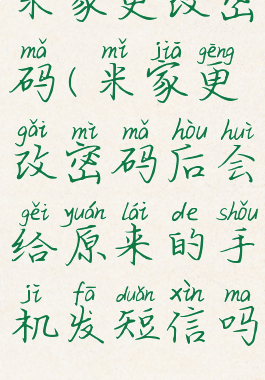 米家更改密
mǎ mǐ jiā gēng
码(米家更
gǎi mì mǎ hòu huì
改密码后会
gěi yuán lái de shǒu
给原来的手
jī fā duǎn xìn ma
机发短信吗